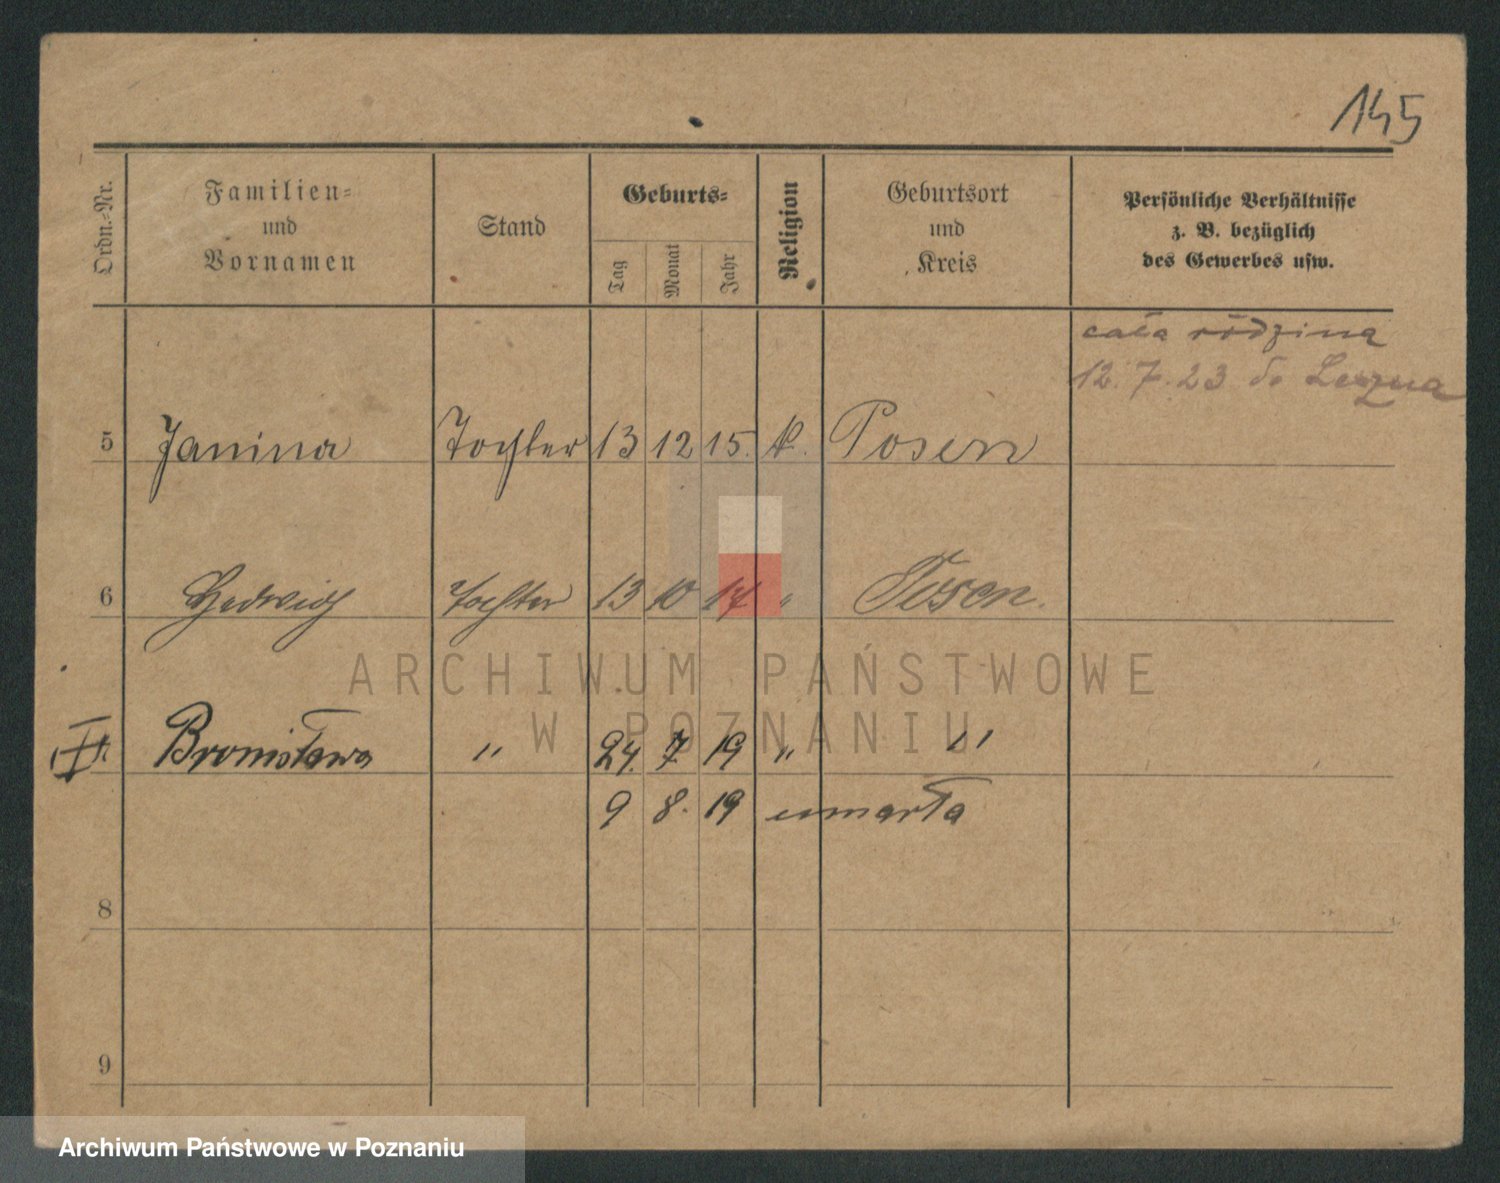 145
Ordn.-Nr.
Familien-
und
Vornamen
Stand
Geburts-
Tag
Monat
Jahr
Religion
Geburtsort
und
Kreis
Persönliche Verhältnisse
z. B. bezüglich
des Gewerbes usw.
cała rodzina
12.7.23 do Leszna
5 Janina Tochter 13 12 15. k. Posen
6 Hedwig Tochter 13 10 17 " Posen.
Bronisława " 24. 7. 19 " "
9 8. 19 umarła
8
9
ARCHIWUM PAŃSTWOWE
W POZNANIU
Archiwum Państwowe w Poznaniu